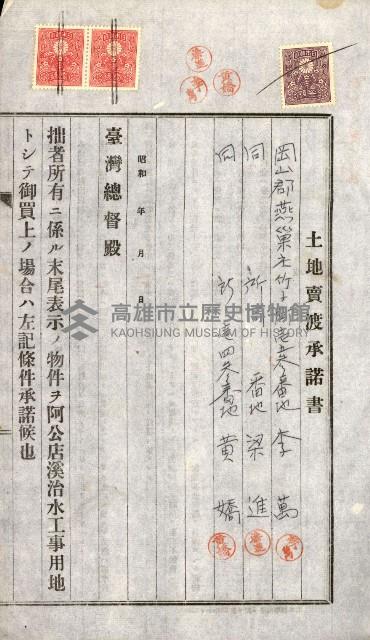 土地賣渡承諾書
岡山郡燕巢庄 番地 李 萬
同 所 番地 梁 進
同 所 番地 黃 嬌
昭和 年 月 日
臺灣總督殿
拙者所有ニ係ル末尾表示ノ物件ヲ阿公店溪治水工事用地
トシテ御買上ノ場合ハ左記條件承諾候也
高雄市立歷史博物館
KAOHSIUNG MUSEUM OF HISTORY